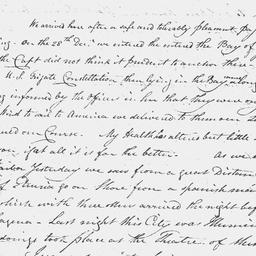 We arrived here after a safe and tolerably pleasant pas
ing. On the 28th Decr. we entered the entered the Bay of
the Capt did not think it prudent to anchor there
U. S. Frigate Constellation then lying in the Bay
ing informed by the officer in her that they were
to sail to America we delivered to them our
our Course. My health has altered but little
if at all it is for the better. As we
Yesterday we saw from a great Distance
of go on Shore from a spanish
which with three others arrived the night be
Last night this City was Illumin
doings took place at the Theatre of the